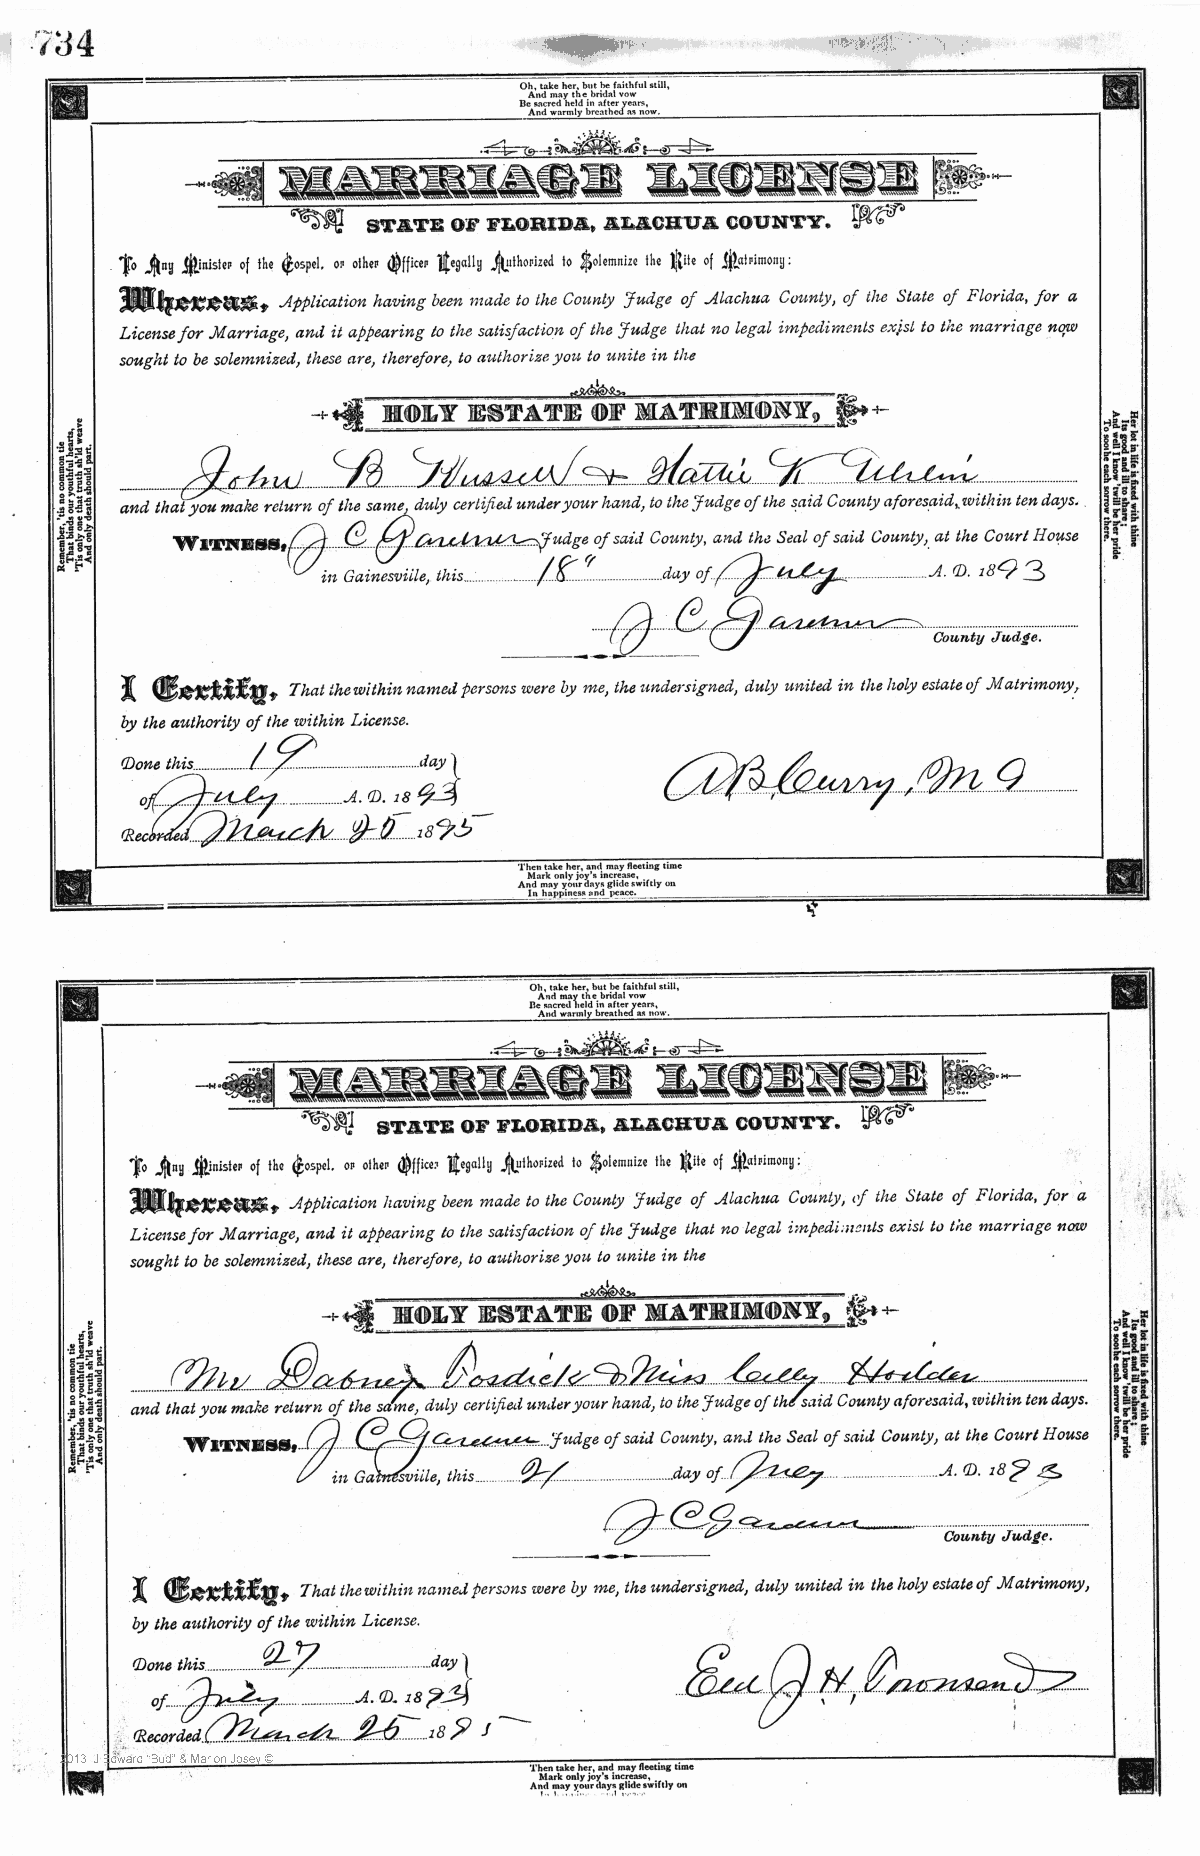 734
Oh, take her, but be faithful still,
And may the bridal vow
Be sacred held in after years,
And warmly breathed as now.
MARRIAGE LICENSE
STATE OF FLORIDA, ALACHUA COUNTY.
To Any Minister of the Gospel, or other Officer Legally Authorized to Solemnize the Rite of Matrimony:
Whereas, Application having been made to the County Judge of Alachua County, of the State of Florida, for a
License for Marriage, and it appearing to the satisfaction of the Judge that no legal impediments exist to the marriage now
sought to be solemnized, these are, therefore, to authorize you to unite in the
HOLY ESTATE OF MATRIMONY,
John B Russell & Hattie K
and that you make return of the same, duly certified under your hand, to the Judge of the said County aforesaid, within ten days.
WITNESS, J C Gardner Judge of said County, and the Seal of said County, at the Court House
in Gainesville, this 18" day of July A. D. 1893
J C Gardner
County Judge.
I Certify, That the within named persons were by me, the undersigned, duly united in the holy estate of Matrimony,
by the authority of the within License.
Done this 19 day
of July A. D. 1893
A B Curry, M G
Recorded March 25 1895
Then take her, and may fleeting time
Mark only joy's increase,
And may your days glide swiftly on
In happiness and peace.
Remember, 'tis no common tie
That binds our youthful hearts,
'Tis only one that truth sh'ld weave
And only death should part.
Her lot in life is fixed with thine
Its good and ill to share;
And well I know 'twill be her pride
To soothe each sorrow there.
Oh, take her, but be faithful still,
And may the bridal vow
Be sacred held in after years,
And warmly breathed as now.
MARRIAGE LICENSE
STATE OF FLORIDA, ALACHUA COUNTY.
To Any Minister of the Gospel, or other Officer Legally Authorized to Solemnize the Rite of Matrimony:
Whereas, Application having been made to the County Judge of Alachua County, of the State of Florida, for a
License for Marriage, and it appearing to the satisfaction of the Judge that no legal impediments exist to the marriage now
sought to be solemnized, these are, therefore, to authorize you to unite in the
HOLY ESTATE OF MATRIMONY,
Mr Dabney Fosdick & Miss Celly Holder
and that you make return of the same, duly certified under your hand, to the Judge of the said County aforesaid, within ten days.
WITNESS, J C Gardner Judge of said County, and the Seal of said County, at the Court House
in Gainesville, this 21 day of July A. D. 1893
J C Gardner
County Judge.
I Certify, That the within named persons were by me, the undersigned, duly united in the holy estate of Matrimony,
by the authority of the within License.
Done this 27 day
of July A. D. 1893
J. H. Townsend
Recorded March 25 1895
2013 J Edward "Bud" & Marion Josey ©
Then take her, and may fleeting time
Mark only joy's increase,
And may your days glide swiftly on
Remember, 'tis no common tie
That binds our youthful hearts,
'Tis only one that truth sh'ld weave
And only death should part.
Her lot in life is fixed with thine
Its good and ill to share;
And well I know 'twill be her pride
To soothe each sorrow there.